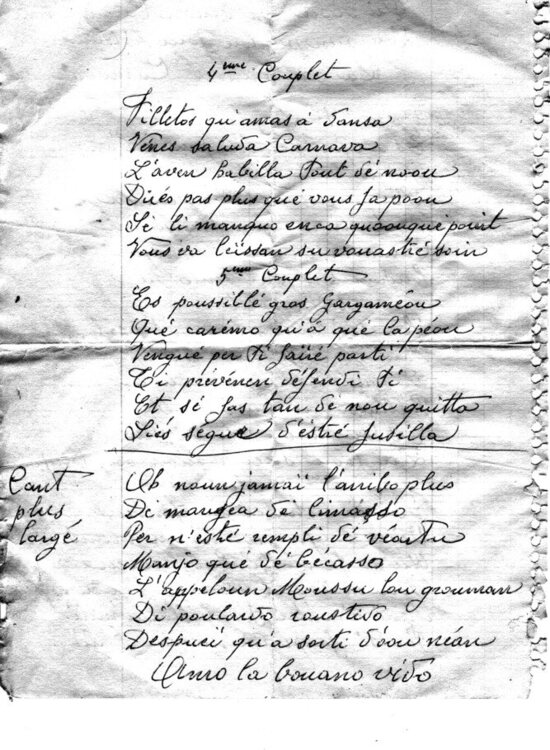 4eme Couplet
Filletos qu'amas à dansa
Vénes saluda Carnava
L'aven habilla Tout dé noou
Diés pas plus qué vous fa poou
Sé li manquo enca quaouqué point
Vous va leissan su vouastré soin
5eme Couplet
Es poussiblé gros Gargaméou
Qué carémo qu'a qué la péou
Vengué per ti faïré parti
Ti prévénen défendi ti
Et sé fas tan dé nou quitta
Siés ségur d'éstré fusilla
Cant plus largé
Oh noun jamaï l'arribo plus
Di mangea de limasso
Per n'esté rempli dé véartu
Manjo qué dé bécasso
L'appeloun Moussu lou grouman
Di poulardo roustido
Despueï qu'a sorti d'oou néan
Amo la bouano vido